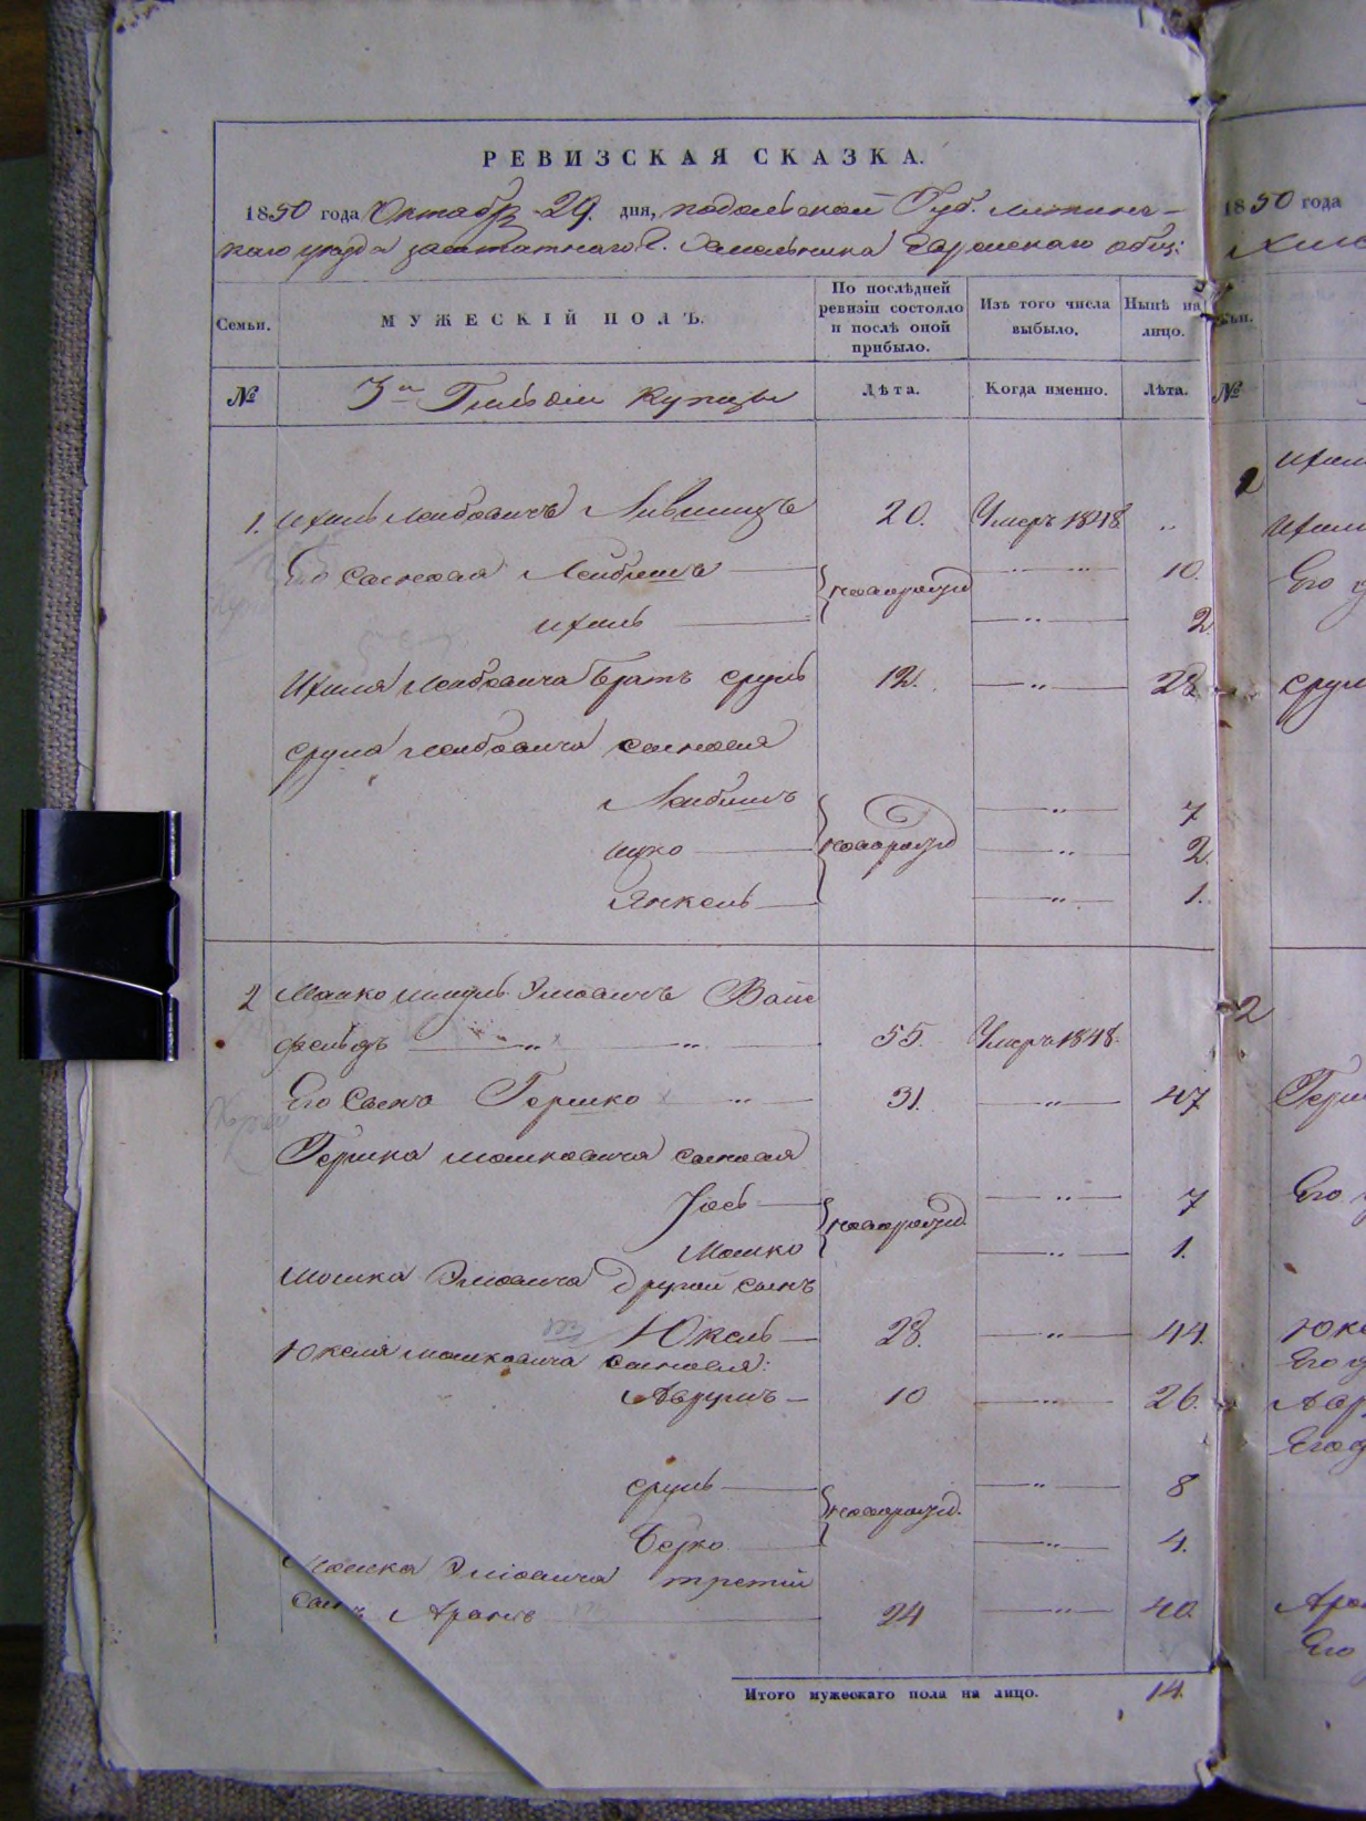 РЕВИЗСКАЯ СКАЗКА.
1850 года Октября 29. дня, подольской Губ. литинс-
каго уезда заштатнаго г. Хмельника Еврейскаго общ:
Семьи.
МУЖЕСКІЙ ПОЛЪ.
По послѣдней ревизіи состояло и послѣ оной прибыло.
Изъ того числа выбыло.
Нынѣ на лицо.
№
3й Гильдіи Купцы
Лѣта.
Когда именно.
Лѣта.
1. Ихиль Лейбовичъ Лившицъ 20. Умеръ 1848 „
Его сыновья Лейбишъ новорожд „ 10.
Ихиль „ 2.
Ихиля Лейбовича братъ Сруль 12. „ 28.
Сруля Лейбовича сыновья
Лейбишъ „ 7
Ицко новорожд „ 2.
Янкель „ 1.
2 Мошко Шмуль Элиовичъ Вайс
фельдъ „ „ 55. Умеръ 1848.
Его сынъ Гершко „ 31. „ 47
Гершка Мошковича сыновья
Іось новорожд. „ 7
Мошко „ 1.
Мошка Эліовича другой сынъ
Юкель 28. „ 44.
Юкеля Мошковича сыновья:
Аврумъ 10 „ 26.
Сруль новорожд. „ 8
Берко „ 4.
Мошка Эліовича третій
сынъ Аронъ 24 „ 40.
Итого мужескаго пола на лицо. 14.
1850 года
№
2
Его
2
Его
Его